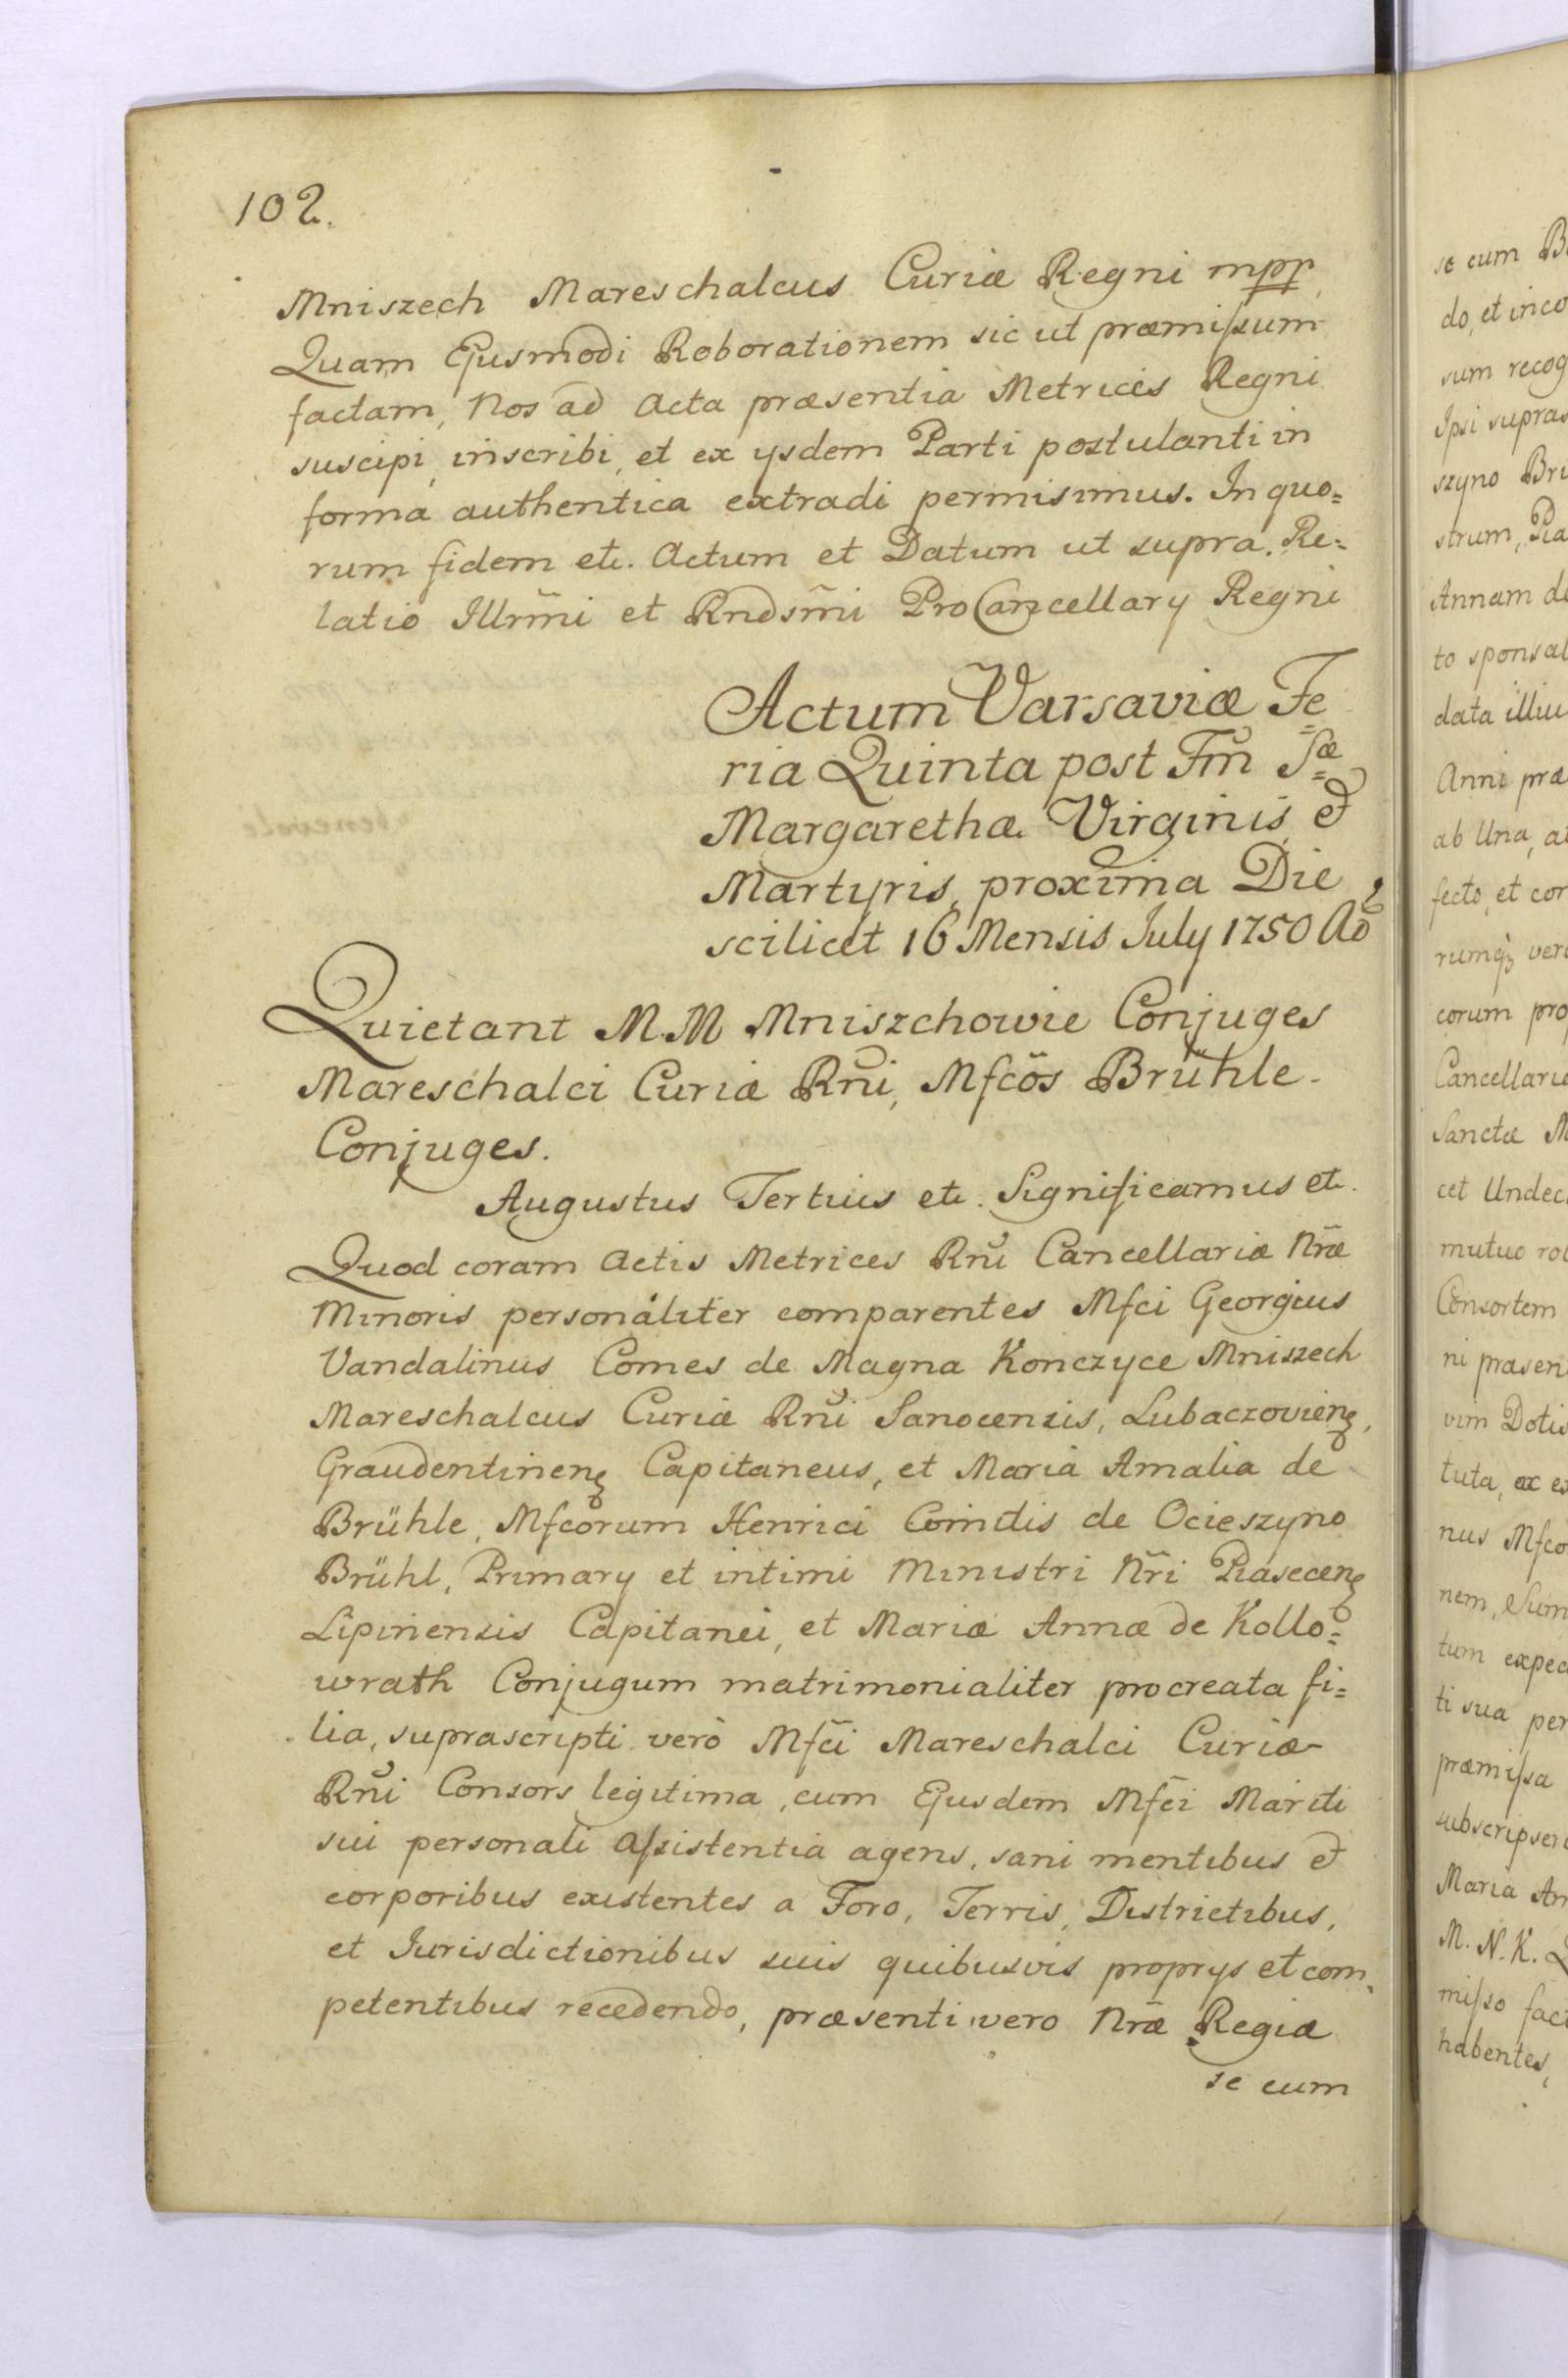 102.
Mniszech Mareschalcus Curiæ Regni mpp
Quam Ejusmodi Roborationem sic ut præmissum
factam, Nos ad Acta præsentia Metrices Regni
suscipi, inscribi, et ex ysdem Parti postulanti in
forma authentica extradi permisimus. In quo=
rum fidem etc. Actum et Datum ut supra. Re=
latio Illrm̃i et Rndsm̃i ProCancellary Regni
Actum Varsaviæ Fe=
ria Quinta post Fm̃ Sæ=
Margarethæ Virginis et
Martyris, proxima Die
scilicet 16 Mensis July 1750 Ao
Quietant M.M Mniszchowie Conjuges
Mareschalci Curiæ Rñi, Mfcõs Brühle
Conjuges.
Augustus Tertius etc. Significamus etc.
Quod coram Actis Metrices Rñi Cancellariæ Nr̃æ
Minoris personaliter comparentes Mfci Georgius
Vandalinus Comes de Magna Konczyce Mniszech
Mareschalcus Curiæ Rñi Sanocensis, Lubaczovienȝ,
Graudentinenȝ Capitaneus, et Maria Amalia de
Brühle, Mfcorum Henrici Com̃itis de Ocieszyno
Brühl, Primary et intimi Ministri Nr̃i Piasecenȝ
Lipinensis Capitanei, et Mariæ Annæ de Kollo=
wrath Conjugum matrimonialiter procreata fi=
lia, suprascripti verò Mfc̃i Mareschalci Curiæ
Rñi Consors legitima, cum Ejusdem Mfc̃i Mariti
sui personali Assistentia agens, sani mentibus et
corporibus existentes a Foro, Terris, Districtibus,
et Jurisdictionibus suis quibusvis proprys et com=
petentibus recedendo, præsenti vero Nr̃æ Regiæ
se cum
se cum
do, et inco
sum recog
Ipsi supras
szyno Brü
strum, Pia
Annam de
to sponsal
data illiu
Anni præ
ab Una, a
fecto, et cor
rumqȝ vero
eorum prop
Cancellariæ
Sanctæ M
cet Undec
mutuo rob
Consortem
ni præsen
vim Dotis
tuta, ex e
nus Mfco
nem, Sum
tum expe
ti sua per
præmissa
subscripser
Maria An
M. N. K.
misso fact
habentes,